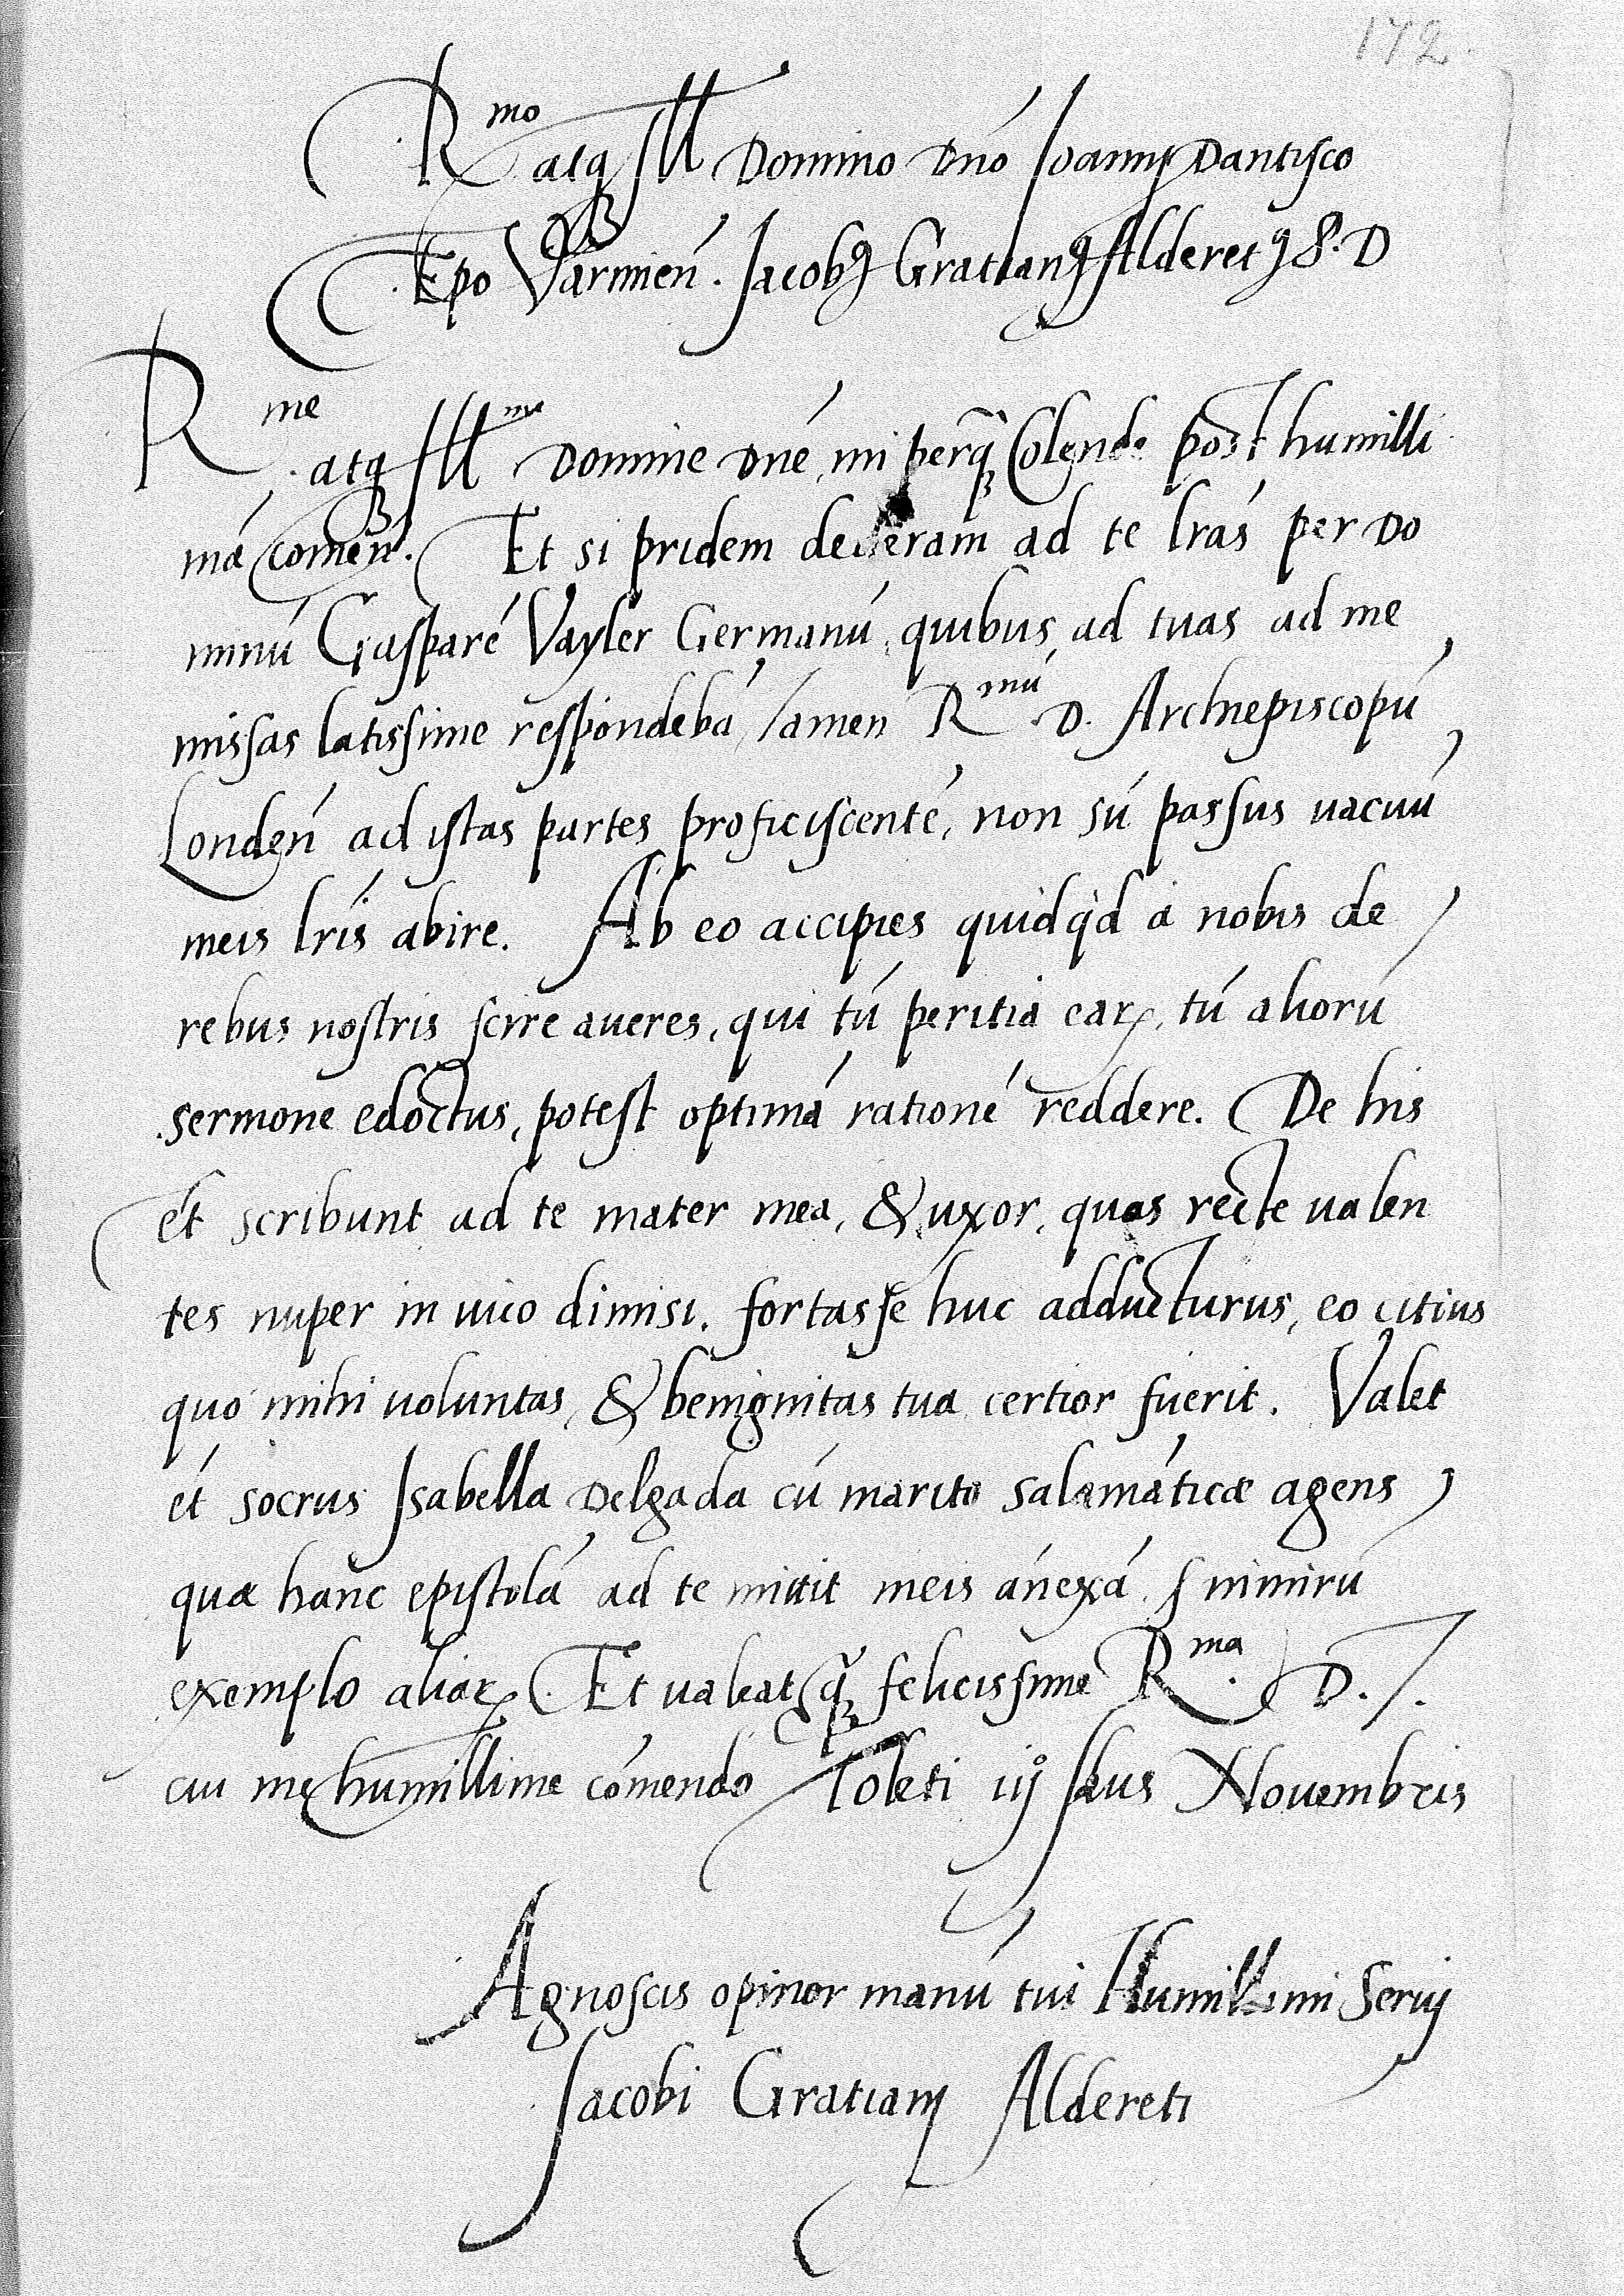 172.
R^mo atq Ill Domino Dno Ioanni Dantisco
Epo Varmien. Jacobꝰ Gratianꝰ Alderetꝰ S. D
R^me atqꝫ Ill^me Domine Dne mi perqꝫ Colende post humilli
mā Comen. Et si pridem dederam ad te lrás per Do
minū Gasparē Vayler Germanū, quibus, ad tuas ad me,
missas latissime respondebā, tamen R^mū D. Archiepiscopū,
Londen ad istas partes proficiscentē, non sū passus uacuū
meis lris abire. Ab eo accipies quidqd à nobis de
rebus nostris scire aueres, qui tū peritia earꝝ, tū aliorū
sermone edoctus, potest optimā rationē reddere. De his
et scribunt ad te mater mea, & uxor, quas recte ualen
tes nuper in uico dimisi. fortasse huc adducturus, eo citius
quo mihi uoluntas, & benignitas tua certior fuerit. Valet
et socrus Isabella Delgada cū marito Salamāticæ agens,
quæ hanc epistolā ad te mittit meis ānexā, nimirū
exemplo aliarꝝ. Et ualeat qꝫ felicissime R^ma D. T.
cui me humillime cōmendo Toleti iij Idus Nouembris
Agnoscis opinor manū tui Humillimi Seruj
Jacobi Gratianj Aldereti